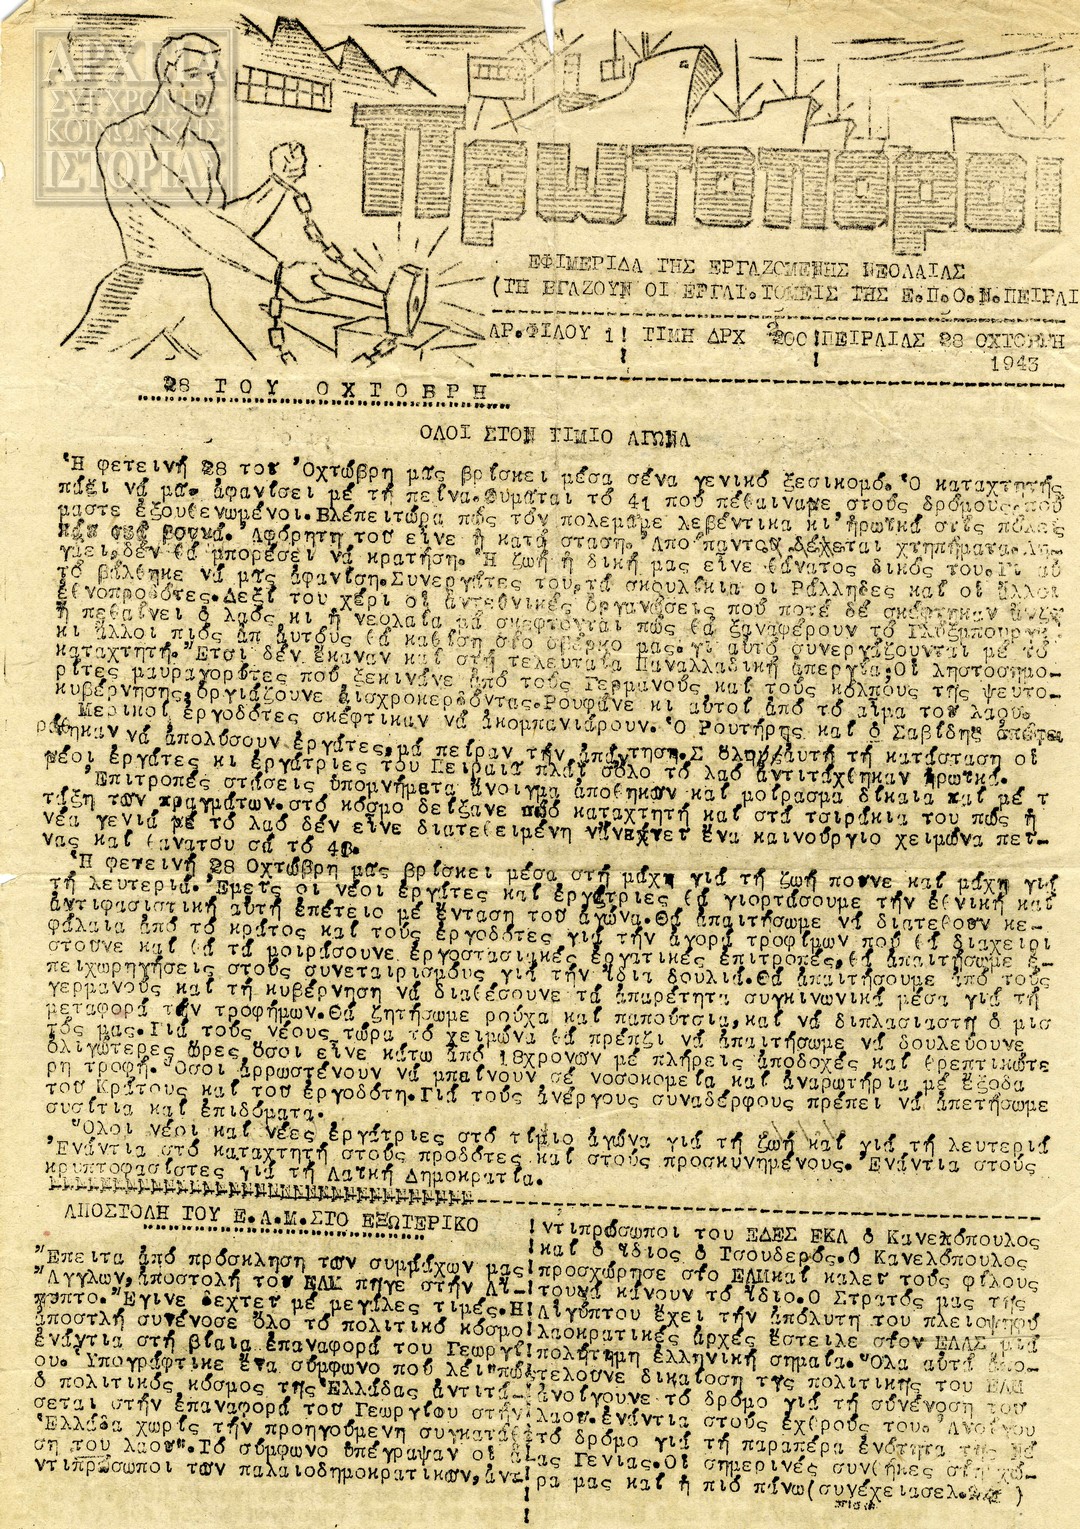 ΑΡΧΕΙΑ
ΣΥΓΧΡΟΝΗΣ
ΚΟΙΝΩΝΙΚΗΣ
ΙΣΤΟΡΙΑΣ
Πρωτοποροι
ΕΦΙΜΕΡΙΔΑ ΤΗΣ ΕΡΓΑΖΟΜΕΝΗΣ ΝΕΟΛΑΙΑΣ
(ΤΗ ΒΓΑΖΟΥΝ ΟΙ ΕΡΓΑΤ.ΤΟΜΕΙΣ ΤΗΣ Ε.Π.Ο.Ν.ΠΕΙΡΑΙ
ΑΡ.ΦΙΛΟΥ 1! ΤΙΜΗ ΔΡΧ 200 !ΠΕΙΡΑΙΑΣ 28 ΟΧΤΟΒΡΗ
1943
28 ΤΟΥ ΟΧΤΟΒΡΗ
ΟΛΟΙ ΣΤΟΝ ΤΙΜΙΟ ΑΓΩΝΑ
Ἡ φετεινή 28 του Ὀχτώβρη μας βρίσκει μέσα σένα γενικό ξεσικομό. Ὁ καταχτητής
πάει νά μας ἀφανίσει μέ τή πείνα.Θυμᾶται τό 41 πού πέθαιναμε στούς δρόμους,πού
μαστε ἐξουθενωμένοι.Βλέπει τώρα πώς τόν πολεμᾶμε λεβέντικα κι ἡρωϊκά στίς πόλεις
καί στά βουνά. Ἀφόρητη του εἶνε ἡ κατάσταση. Ἀπό παντοῦ δέχεται χτηπήματα.
δέν θά μπορέσει νά κρατήση. Ἡ ζωή ἡ δική μας εἶνε θάνατος δικός του.Γι αὐ
τό βάλθηκε νά μᾶς ἀφανίση.Συνεργάτες του,τά σκουλίκια οἱ Ράλληδες καί οἱ ἄλλοι
ἐθνοπροδότες.Δεξί του χέρι οἱ ἀντεθνικές ὀργανώσεις πού ποτέ δέ σκέφτηκαν ἄν ζῆ
ἤ πεθαίνει ὁ λαός κι ἡ νεολαία μά σκέφτονται πώς θά ξαναφέρουν τό Γλύξμπουργκ
κι ἄλλοι πιός ἀπ αὐτούς θά καθίση στό σβέρκο μας.γι αὐτό συνεργάζουνται μέ τό
καταχτητή. Ἔτσι δέν ἔκαναν καί στή τελευταία Παναλλαδική ἀπεργία;Οἱ ληστοσημο-
ρίτες μαυραγορίτες πού ξεκινᾶνε ἀπό τούς Γερμανούς καί τούς κόλπους τῆς ψευτο-
κυβέρνησης,ὀργιάζουνε αἰσχροκερδόντας.Ρουφᾶνε κι αὐτοί ἀπό τό αἷμα του λαοῦ.
Μερικοί ἐργοδότες σκέφτικαν νά ἀκομπανιάρουν. Ὁ Ρουτήρης καί ὁ Σαβίδης
ράθηκαν νά ἀπολύσουν ἐργάτες,μά πείραν τήν ἀπάντηση.Σ ὅλην αὐτή τή κατάσταση οἱ
νέοι ἐργάτες κι ἐργάτριες τοῦ Πειραιᾶ πλάϊ σόλο τό λαό ἀντιτάχθηκαν ἡρωϊκά.
Ἐπιτροπές στάσεις ὑπομνήματα ἄνοιγμα ἀποθηκῶν καί μοίρασμα δίκαια καί μέ τ
τάξη τῶν πραγμάτων.στό κόσμο δείξανε στό καταχτητή καί στά τσιράκια του πώς ἡ
νέα γενιά μέ τό λαό δέν εἶνε διατεθειμένη νἀνεχτεῖ ἕνα καινούργιο χειμῶνα πεί-
νας καί θανάτου σά τό 41.
Ἡ φετεινή 28 Ὀχτώβρη μᾶς βρίσκει μέσα στή μάχη γιά τή ζωή πούνε καί μάχη γιά
τή λευτεριά. Ἐμεῖς οἱ νέοι ἐργάτες καί ἐργάτριες θά γιορτάσουμε τήν ἐθνική καί
ἀντιφασιστική αὐτή ἐπέτειο μέ ἔνταση τοῦ ἀγώνα.Θά ἀπαιτήσωμε νά διατεθοῦν κε-
φάλαια ἀπό τό κράτος καί τούς ἐργοδότες γιά τήν ἀγορά τροφίμων πού θά διαχειρι
στοῦνε καί θά τά μοιράσουνε ἐργοστασιακές ἐργατικές ἐπιτροπές,θά ἀπαιτήσωμε ἐ-
πειχωρηγήσεις στούς συνεταιρισμούς γιά τήν ἴδια δουλιά.Θά ἀπαιτήσουμε ἀπό τούς
γερμανούς καί τή κυβέρνηση νά διαθέσουνε τά ἀπαρέτητα συγκινωνικά μέσα γιά τή
μεταφορά τῶν τροφήμων.Θά ζητήσωμε ροῦχα καί παπούτσια,καί νά διπλασιαστῆ ὁ μισ
τός μας.Γιά τούς νέους τώρα τό χειμώνα θά πρέπει νά ἀπαιτήσωμε νά δουλεύουνε
ὀλιγώτερες ὧρες,ὅσοι εἶνε κάτω ἀπό 18χρονῶν μέ πλήρεις ἀποδοχές καί θρεπτικώτε
ρη τροφή. Ὅσοι ἀρρωστένουν νά μπαίνουν σέ νοσοκομεῖα καί ἀναρωτήρια μέ ἔξοδα
τοῦ Κράτους καί τοῦ ἐργοδότη.Γιά τούς ἀνέργους συναδέρφους πρέπει νά ἀπετήσωμε
συσίτια καί ἐπιδόματα.
Ὅλοι νέοι καί νέες ἐργάτριες στό τίμιο ἀγώνα γιά τή ζωή καί γιά τή λευτεριά
Ἐνάντια στό καταχτητή στούς προδότες καί στούς προσκυνημένους. Ἐνάντια στούς
κρυπτοφασίστες γιά τή Λαϊκή Δημοκρατία.
ΑΠΟΣΤΟΛΗ ΤΟΥ Ε.Α.Μ.ΣΤΟ ΕΞΩΤΕΡΙΚΟ
Ἔπειτα ἀπό πρόσκληση τῶν συμμάχων μας
Ἄγγλων,ἀποστολή τοῦ ΕΑΜ πῆγε στήν Αἴ-
γυπτο. Ἔγινε δεχτεῖ μέ μεγάλες τιμές.Ἡ
ἀποστλή συνένοσε ὅλο τό πολιτικό κόσμο
ἐνάντια στή βίαια ἐπαναφορά τοῦ Γεωργί
ου. Ὑπογράφτικε ἕνα σύμφωνο πού λέι "πώς
ὁ πολιτικός κόσμος τῆς Ἑλλάδας ἀντιτά-
σεται στήν ἐπαναφορά τοῦ Γεωργίου στήν
Ἑλλάδα χωρίς τήν προηγούμενη συγκατάθε
ση τοῦ λαοῦ".Τό σύμφωνο ὑπέγραψαν οἱ ἀ
ντιπρόσωποι τῶν παλαιοδημοκρατικῶν,ἀντ
ντιπρόσωποι του ΕΔΕΣ ΕΚΑ ὁ Κανελόπουλος
καί ὁ ἴδιος ὁ Τσουδερός.Ὁ Κανελόπουλος
προσχώρησε στό ΕΑΜ καί καλεῖ τούς φίλους
του νά κάνουν τό ἴδιο.Ὁ Στρατός μας τῆς
Αἰγύπτου ἔχει τήν ἀπόλυτη του πλειοψηφία
λαοκρατικές ἀρχές ἔστειλε στόν ΕΛΑΣ μιά
πολύτιμη ἑλληνική σημαία. Ὅλα αὐτά ἀπο-
τελοῦνε δικαίοση τῆς πολιτικῆς τοῦ ΕΑΜ
ἀνοίγουνε τό δρόμο γιά τή συνένοση τοῦ
λαοῦ ἐνάντια στούς ἐχθρούς του. Ἀνοίγου
τό δρόμο γιά τή παραπέρα ἑνότητα τῆς Νέ
ας Γενιᾶς.Οἱ σημερινές συνθῆκες στή χώ-
ρα μας καί ἡ πιό πάνω(συνέχεια σελ.